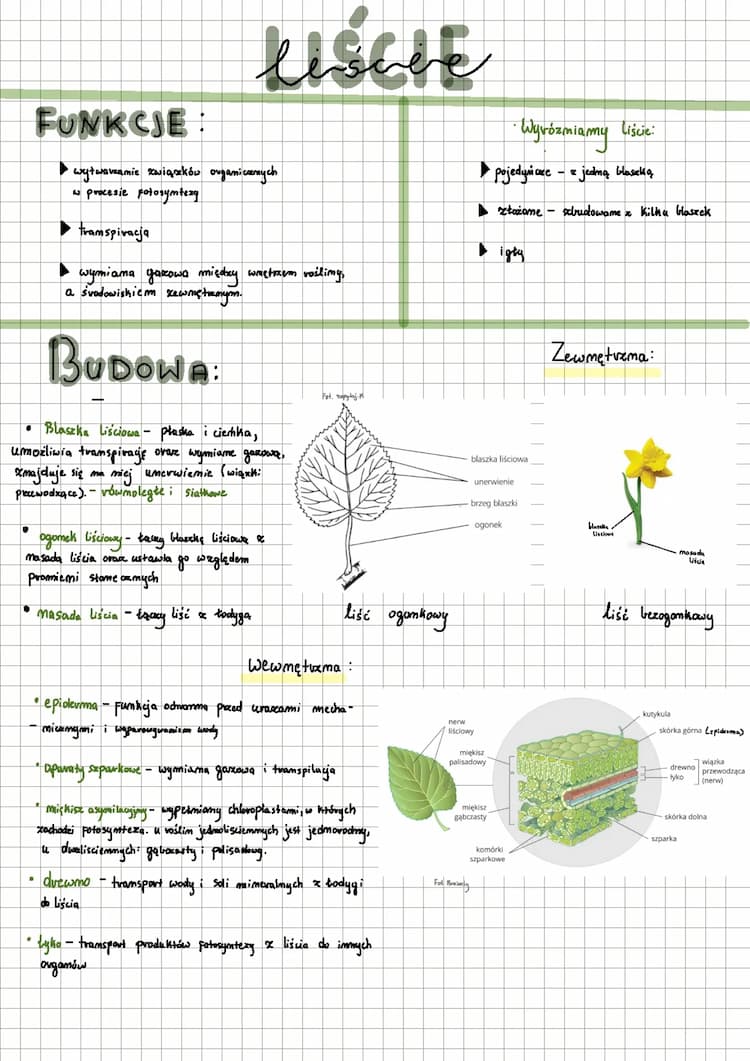 LIŚCIE
liście
FUNKCJE:
wytwarzanie związków organicznych
w procesie fotosyntezy
transpiracja
wymiana gazowa między wnętrzem rośliny,
a środowiskiem zewnętrznym.
Wyróżniamy liście:
pojedyncze - z jedną blaszką
złożone - zbudowane z kilku blaszek
igły
BUDOWA:
Zewnętrzna:
• Blaszka liściowa - płaska i cienka,
umożliwia transpirację oraz wymianę gazową,
znajduje się na niej unerwienie (wiązki
przewodzące). - równoległe i siatkowe
• ogonek liściowy - łączy blaszkę liściową z
nasadą liścia oraz ustawia go względem
promieni słonecznych
• nasada liścia - łączy liść z łodygą
blaszka liściowa
unerwienie
brzeg blaszki
ogonek
liść ogonkowy
blaszka
liściowa
nasada
liścia
liść bezogonkowy
Wewnętrzna:
• epiderma - funkcja ochronna przed urazami mecha-
- nicznymi i wyparowywaniem wody
• Aparaty szparkowe - wymiana gazowa i transpiracja
• miękisz asymilacyjny - wypełniony chloroplastami, w których
zachodzi fotosynteza. u roślin jednoliściennych jest jednorodny,
u dwuliściennych: gąbczasty i palisadowy.
• drewno - transport wody i soli mineralnych z łodygi
do liścia
• łyko - transport produktów fotosyntezy z liścia do innych
organów
nerw
liściowy
miękisz
palisadowy
miękisz
gąbczasty
komórki
szparkowe
kutykula
skórka górna (epiderma)
drewno
łyko
wiązka
przewodząca
(nerw)
skórka dolna
szparka